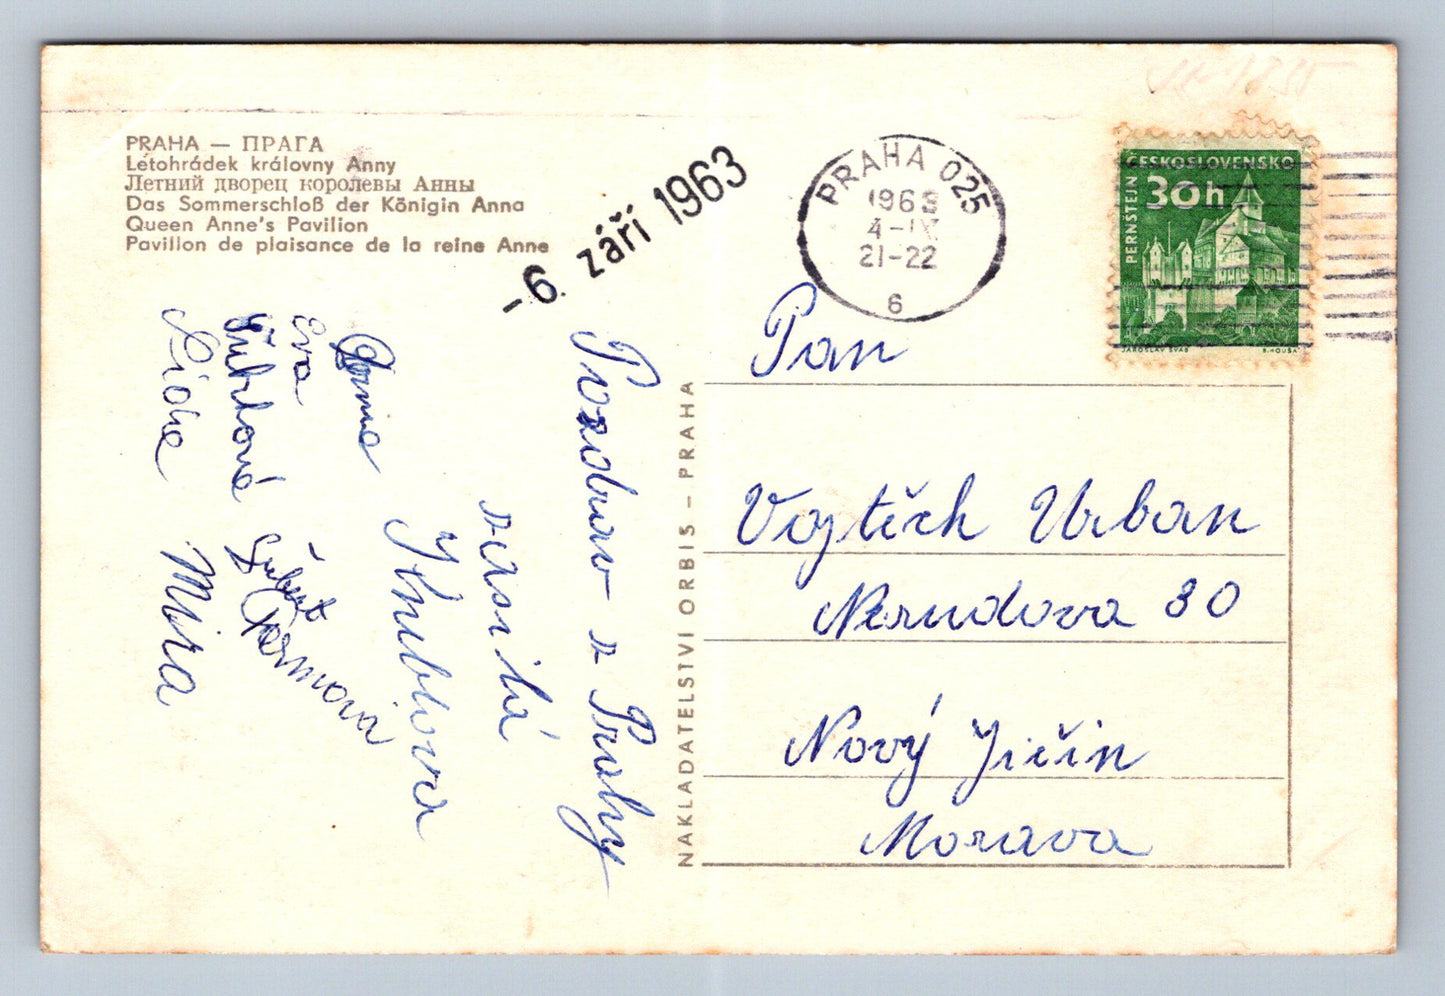 PRAHA — ПРАГА
Letohrádek královny Anny
Летний дворец королевы Анны
Das Sommerschloß der Königin Anna
Queen Anne's Pavilion
Pavillon de plaisance de la reine Anne
-6. září 1963
PRAHA 025
1963
4-IX
21-22
6
ČESKOSLOVENSKO
30h
PERNŠTEJN
JAROSLAV ŠVÁB
B. HOUSA
Pozdrav z Prahy
zasílá
Eva
Mira
NAKLADATELSTVÍ ORBIS – PRAHA
Pan
Vojtěch Urban
Nerudova 80
Nový Jičín
Morava